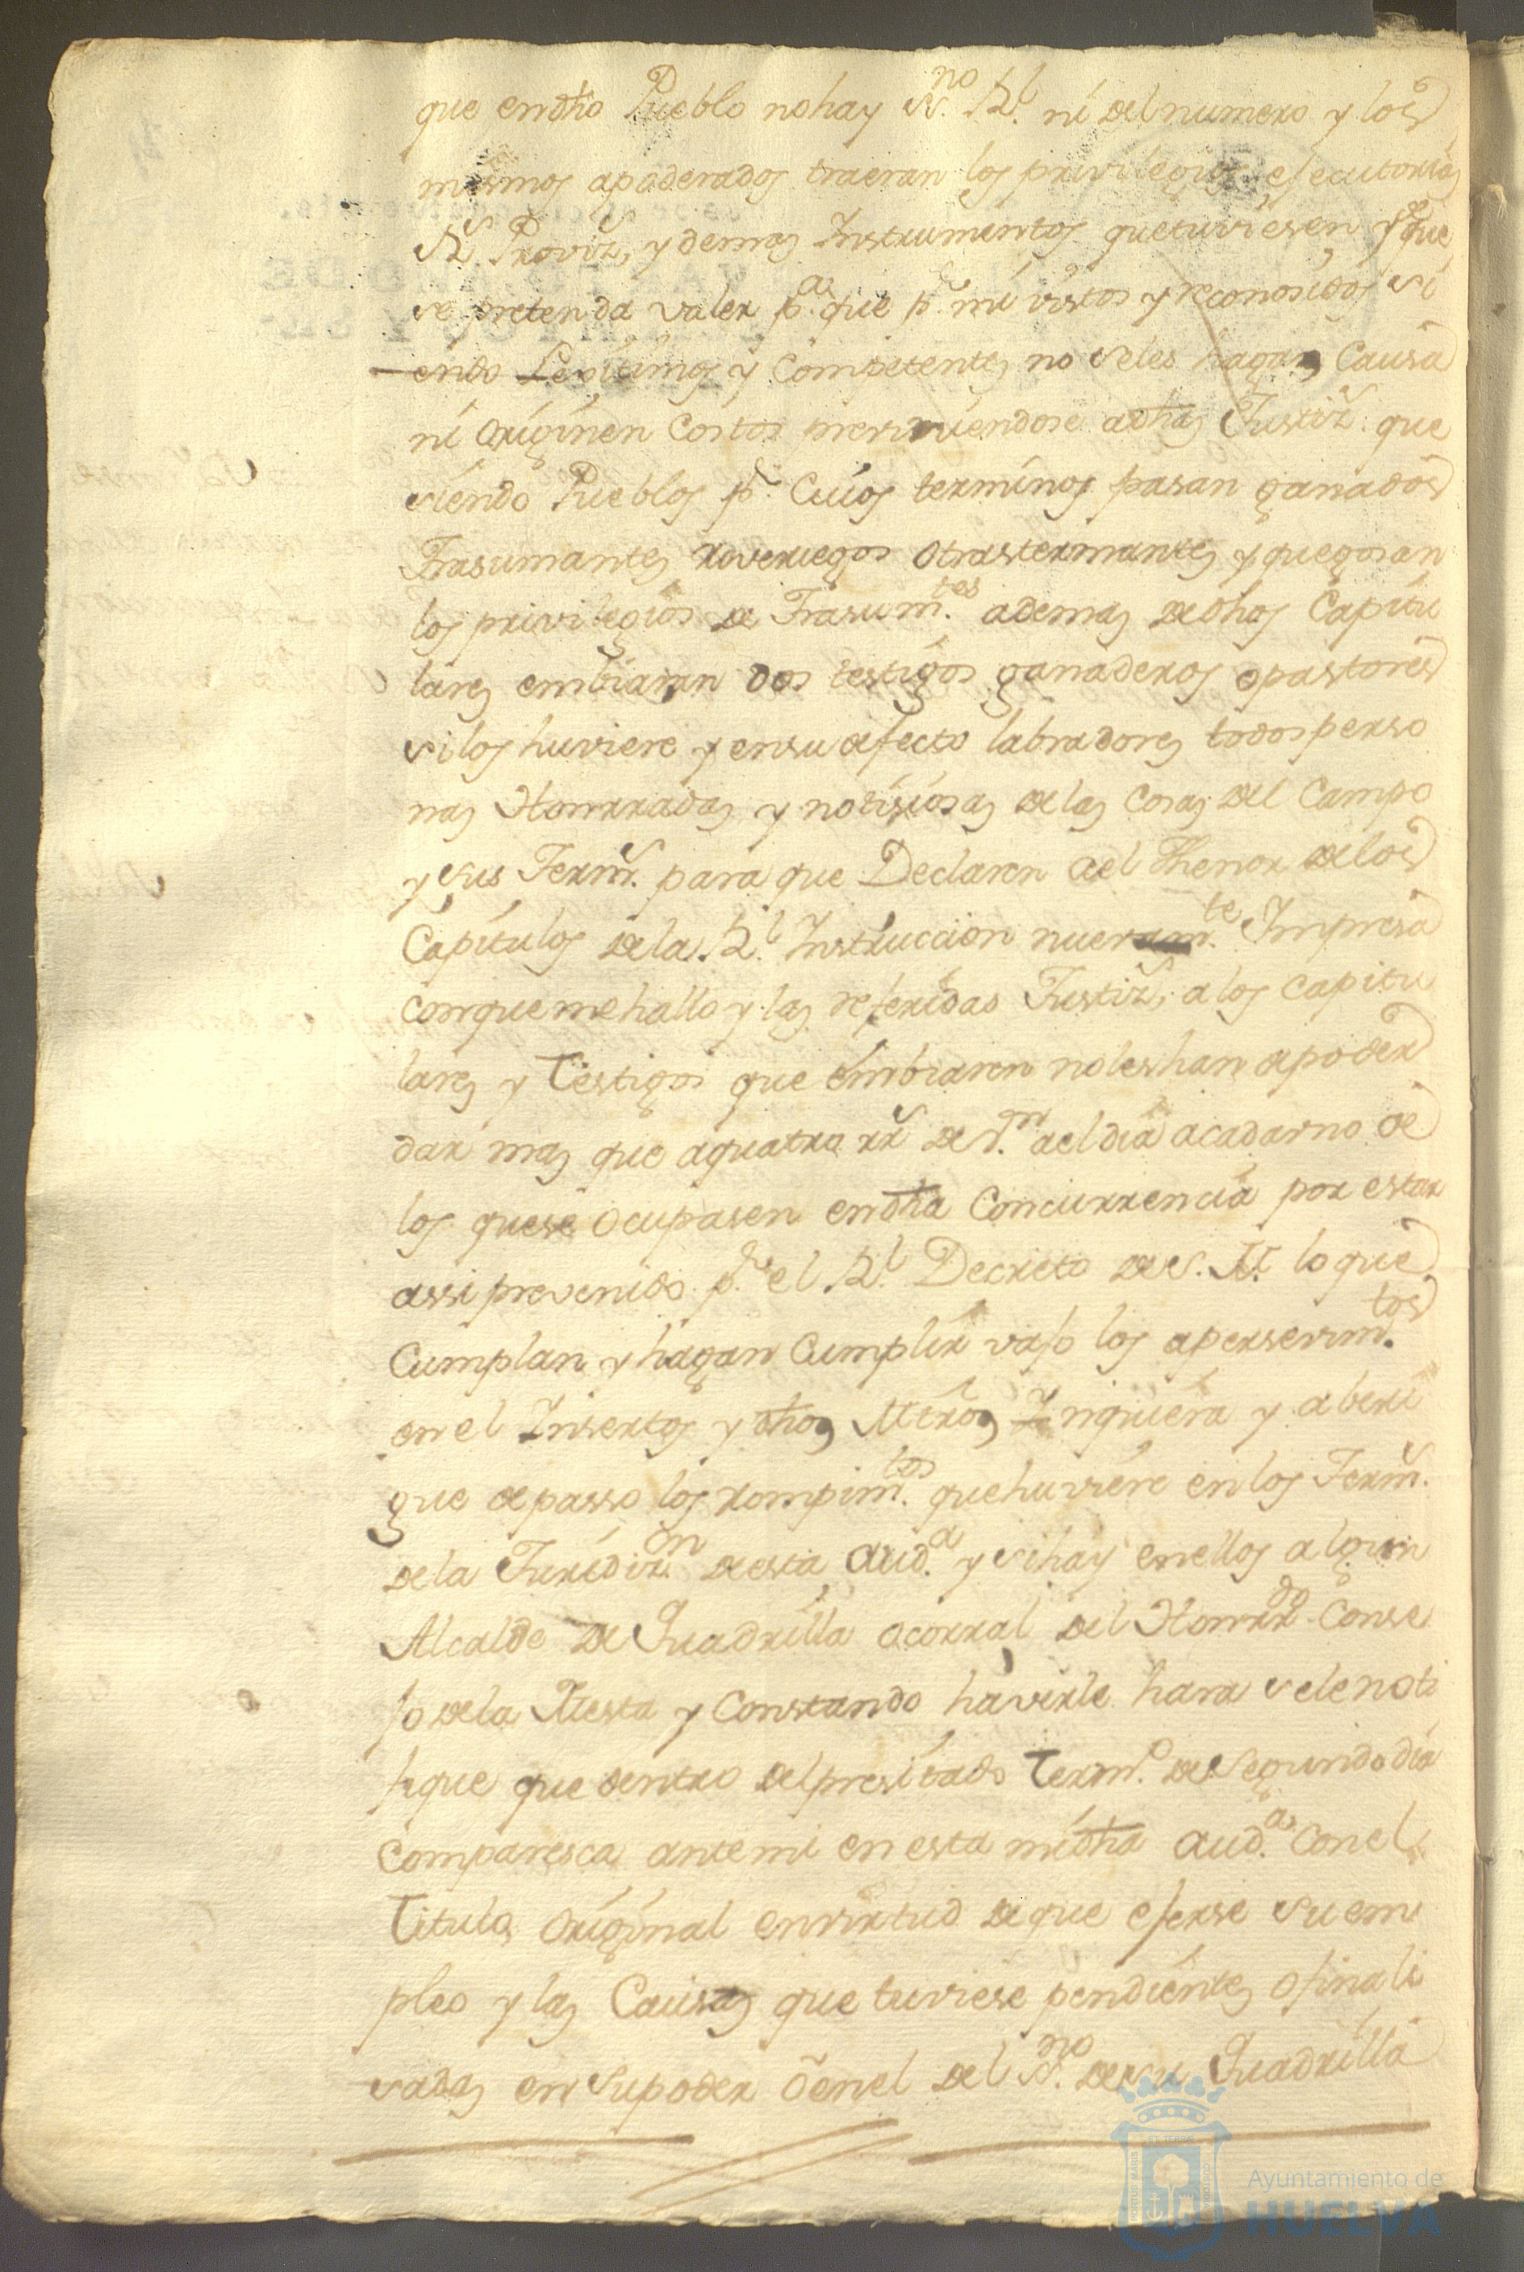 que en dho Pueblo no hay Sno. Rl. ni del numero y los
mismos apoderados traeran los privilegios, ejecutorias
Rs. Proviz. y demas Instrumentos que tuviesen y que
se pretenda valer pa. que pr. mi vistos y reconosidos si
endo Lexitimos y Competentes no seles hagan Causa
ni Originen Costos previniendose a dhas Justiz. que
siendo Pueblos pr. Cuios terminos pasan ganados
Trasumantes roveriegos Otrastermantes y que gosan
los privilegios de Trasum.tes ademas de dhos Capitu
lares embiaran dos testigos ganaderos o pastores
si los huviere y en su defecto labradores todos perso
nas Honrradas y notisiosas de las Cosas del Campo
y sus Terms. para que Declaren ael Thenor de los
Capitulos de la Rl. Instruccion nuevam.te Impresa
con que me hallo y las referidas Justiz. a los Capitu
lares y Testigos que embiaren no les han a poder
dar mas que a quatro rs. de vn. ael dia a cada vno de
los que se Ocupasen en dha Concurrencia por estar
assi prevenido pr. el Rl. Decreto de S. M. lo que
Cumplan y hagan Cumplir vajo los apersevim.tos
en el Insertos y dhos Mtros Inquiera y aberi
gue de passo los rompim.tos que huviere en los Terms.
de la Juridiz.on desta Aud.a y si hay en ellos algun
Alcalde de Quadrilla o corral del Honrr.do Conse
jo de la Mesta y Constando havirle hara se le noti
fique que dentro del presitado Termo. de Segundo dia
Comparesca ante mi en esta mi dha Aud.a con el
Titulo Original en virtud de que eferse su em
pleo y las Causas que tuviese pendientes o finali
sadas en su poder o en el del Sno. de su Quadrilla
Ayuntamiento de
HUELVA